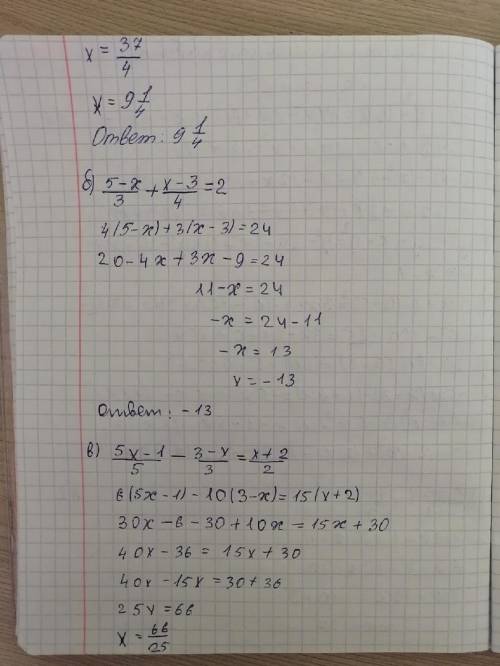 x = 37/4
x = 9 1/4
Ответ: 9 1/4
б) (5-x)/3 + (x-3)/4 = 2
4(5-x)+3(x-3)=24
20-4x+3x-9=24
11-x=24
-x = 24-11
-x = 13
x = -13
Ответ: -13
в) (5x-1)/5 - (3-x)/3 = (x+2)/2
6(5x-1)-10(3-x)=15(x+2)
30x-6-30+10x=15x+30
40x-36 = 15x+30
40x-15x=30+36
25x=66
x = 66/25